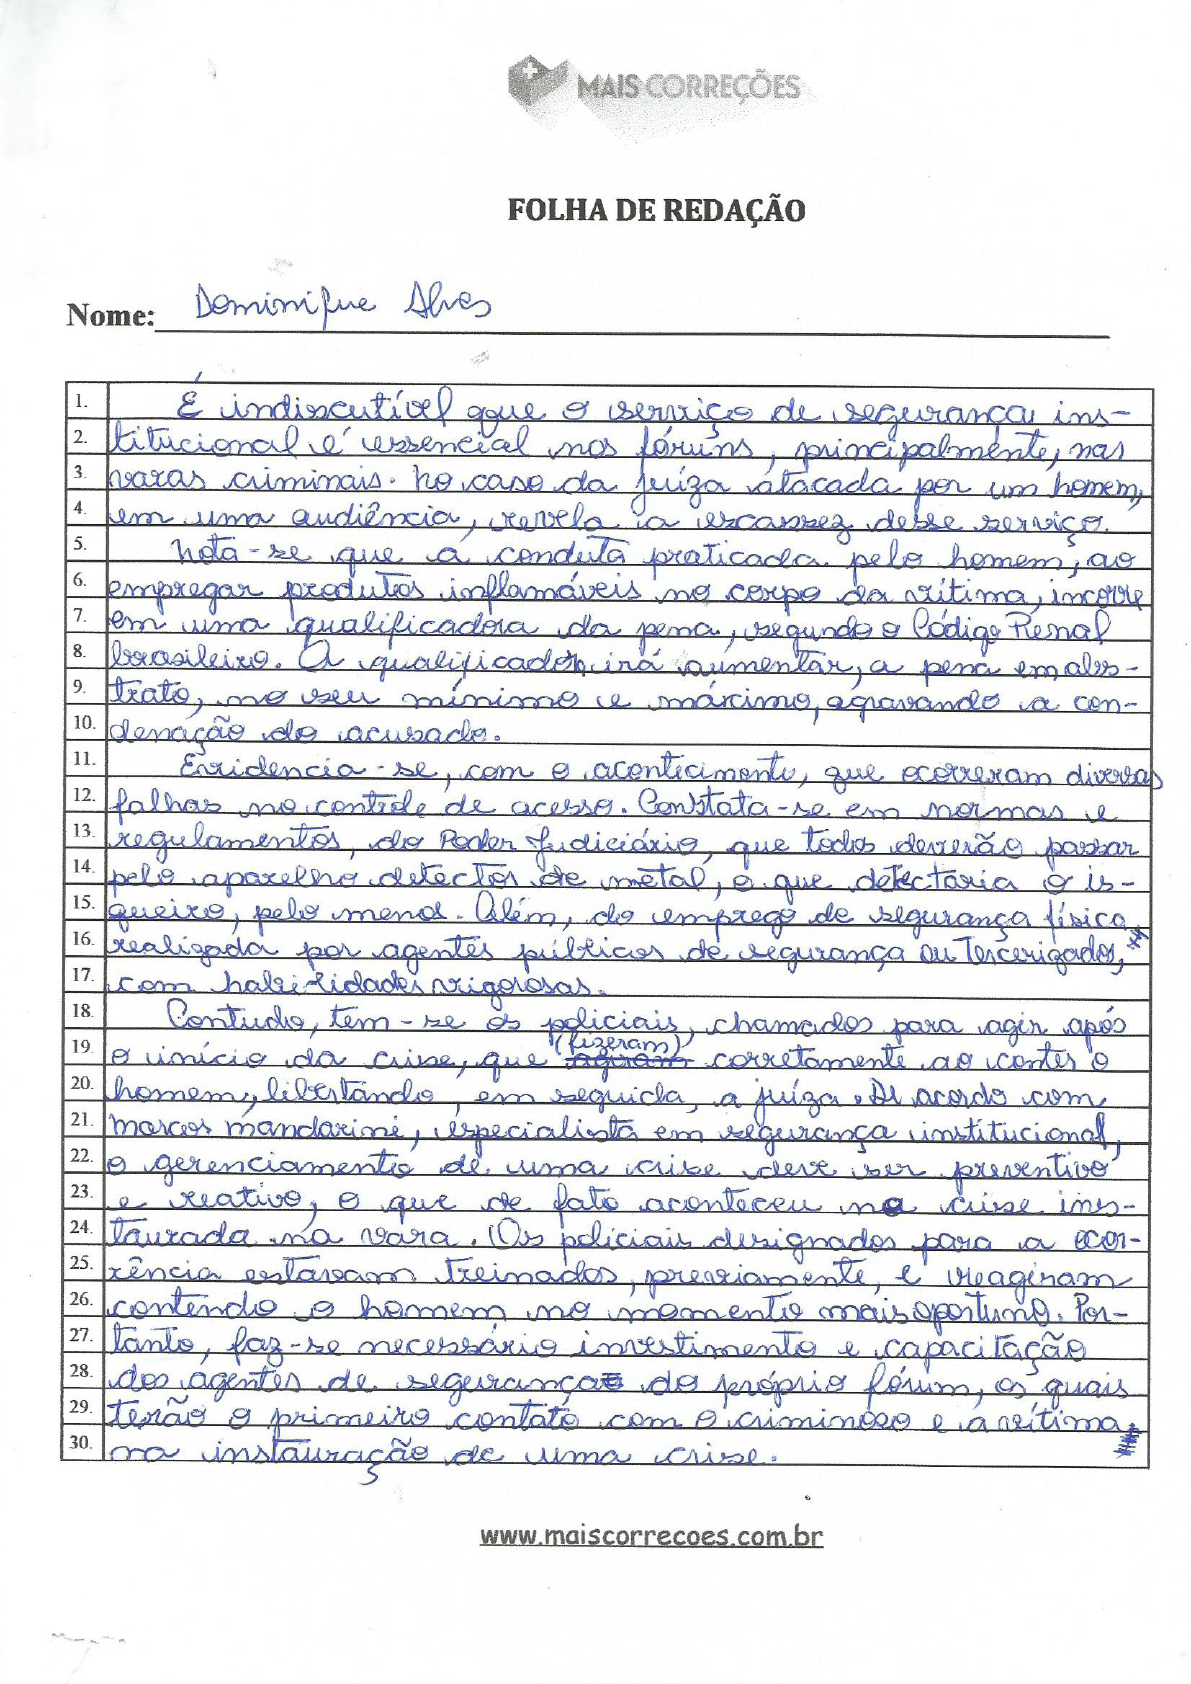 MAIS CORREÇÕES
FOLHA DE REDAÇÃO
Nome: Dominique Alves
1. É indiscutível qque o serviço de segurança ins-
2. titucional é essencial nos fóruns, principalmente, nas
3. varas criminais. No caso da juíza atacada por um homem,
4. em uma audiência, revela a escassez desse serviço.
5. Nota-se que a conduta praticada pelo homem, ao
6. empregar produtos inflamáveis no corpo da vítima, incorre
7. em uma qualificadora da pena, segundo o Código Penal
8. brasileiro. A qualificadora irá aumentar, a pena em abs-
9. trato, no seu mínimo e máximo, agravando a con-
10. denação do acusado.
11. Evidencia-se, com o acontecimento, que ocorreram diversas
12. falhas no controle de acesso. Constata-se em normas e
13. regulamentos, do Poder Judiciário, que todos deverão passar
14. pelo aparelho detector de metal, o que detectaria o is-
15. queiro, pelo menos. Além, do emprego de segurança física
16. realizada por agentes públicos de segurança ou Tercerizados,
17. com habilidades rigorosas.
18. Contudo, tem-se os policiais, chamados para agir após
19. o início da crise, que (fizeram) agiram corretamente ao conter o
20. homem, libertando, em seguida, a juíza. De acordo com
21. Marcos Mandarini, especialista em segurança institucional,
22. o gerenciamento de uma crise deve ser preventivo
23. e reativo, o que de fato aconteceu na crise ins-
24. taurada na vara. Os policiais designados para a ocor-
25. rência estavam treinados, previamente, e reagiram
26. contendo o homem no momento mais oportuno. Por-
27. tanto, faz-se necessário investimento e capacitação
28. dos agentes de segurança do próprio fórum, os quais
29. terão o primeiro contato com o criminoso e a vítima
30. na instauração de uma crise.
www.maiscorrecoes.com.br